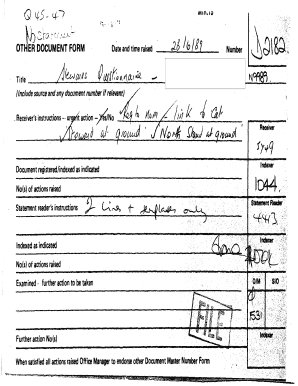 Q 45-47
OTHER DOCUMENT FORM Date and time raised 23/6/89 Number J2182
Title Stewards Questionnaire - N9989
(Include source and any document number if relevant)
Receiver's instructions – urgent action – Yes/No Reg to nom / link to Cat Receiver
Steward at ground / North Stand at ground
Indexer
Document registered/indexed as indicated
1044
No(s) of actions raised
Statement Reader
Statement reader's instructions only
4413
Indexer
Indexed as indicated
No(s) of actions raised
Examined - further action to be taken O/M SIO
FILE
1531
Further action No(s) Indexer
When satisfied all actions raised Office Manager to endorse other Document Master Number Form